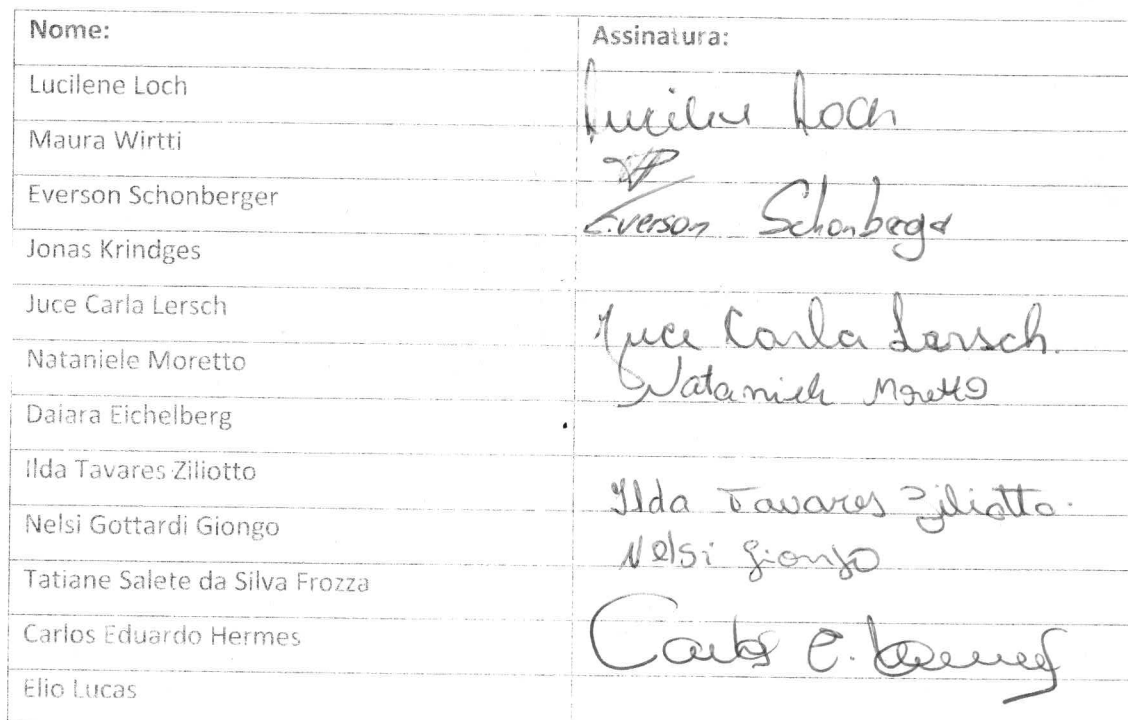 Nome: Assinatura:
Lucilene Loch Lucilene Loch
Maura Wirtti
Everson Schonberger Everson Schonberger
Jonas Krindges
Juce Carla Lersch Juce Carla Lersch.
Nataniele Moretto Nataniele Moretto
Daiara Eichelberg
Ilda Tavares Ziliotto Ilda Tavares Ziliotto.
Nelsi Gottardi Giongo Nelsi Giongo
Tatiane Salete da Silva Frozza
Carlos Eduardo Hermes Carlos E. Hermes
Elio Lucas